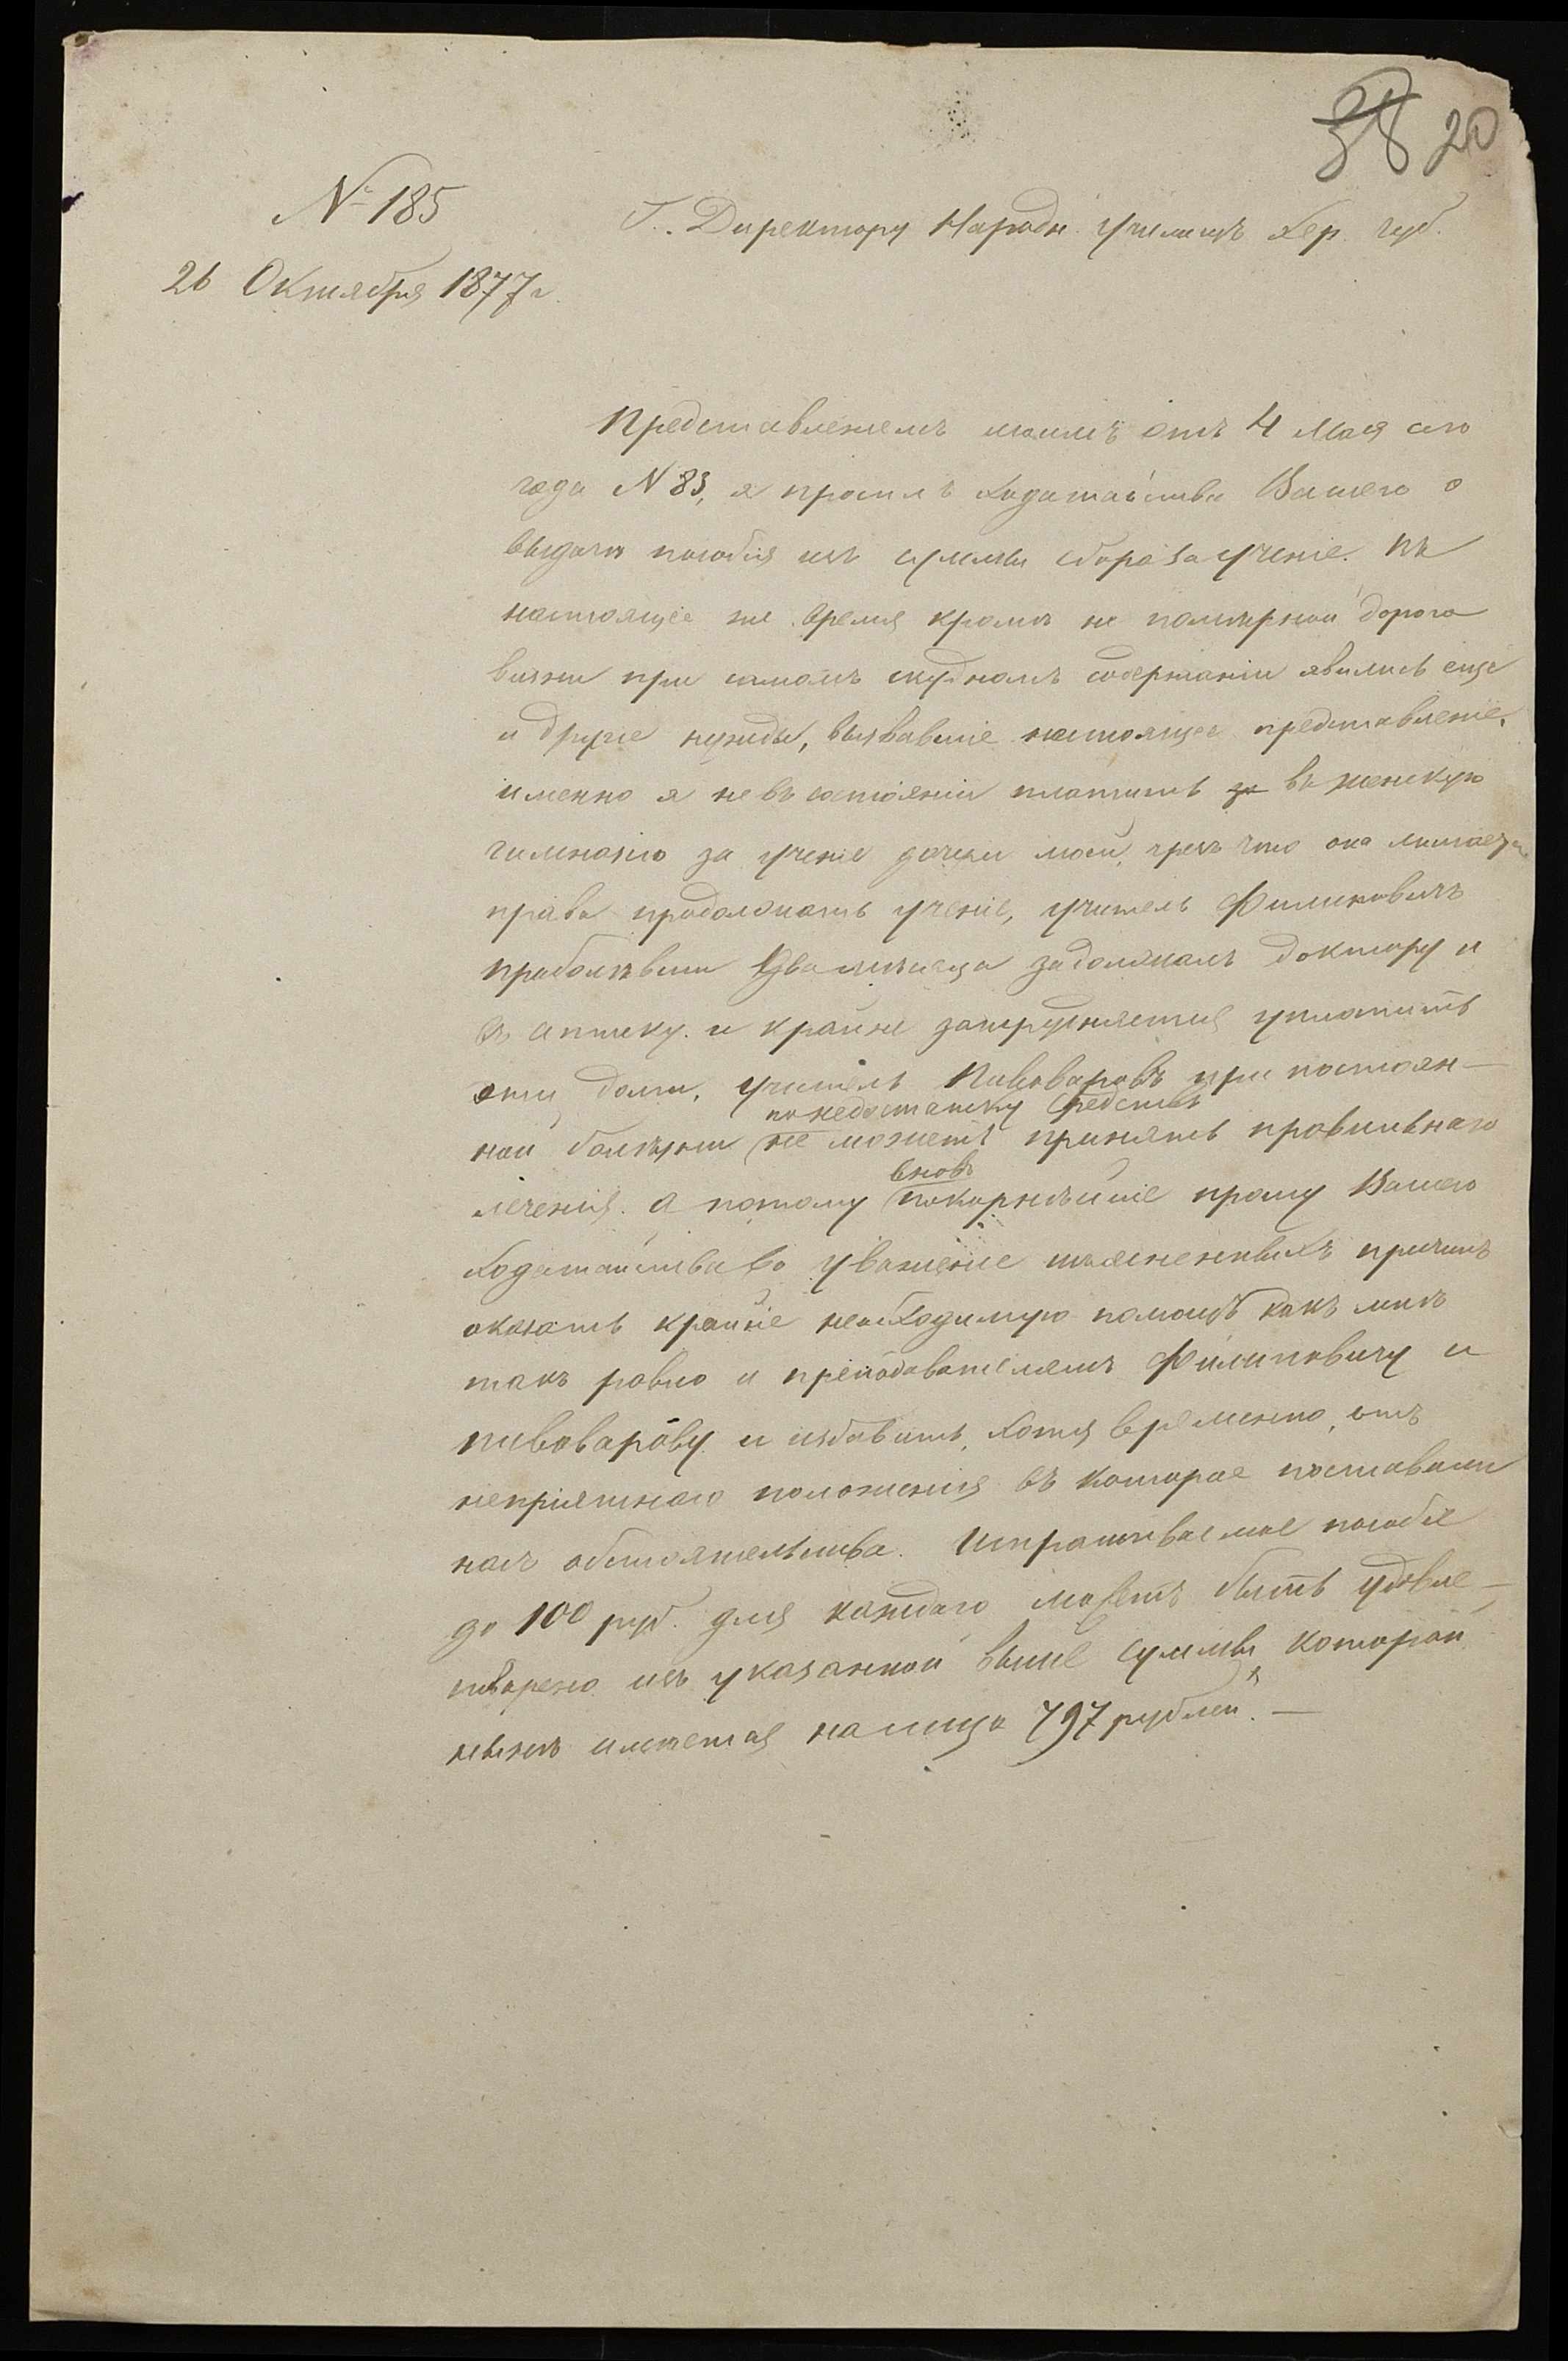 38 20
№ 185
Г. Директору Народн. училищъ Хер. губ.
26 Октября 1877 г.
Представленіемъ моимъ отъ 4 Мая сего
года N 83, я просилъ ходатайства Вашего о
выдачѣ пособія изъ суммы сбора за ученіе. Въ
настоящее же время кромѣ не помѣрной дорого
визны при самомъ скудномъ содержаніи явились еще
и другіе нужды, вызвавшіе настоящее представленіе,
именно я не въ состояніи платить за въ женскую
гимназію за ученіе дочери моей, чрезъ что она лишается
права продолжать ученіе, учитель Филиповичъ
проболѣвши два мѣсяца задолжалъ доктору и
въ аптеку. и крайне затрудняется уплатить
эти долги, учитель Пивоваровъ при постоян-
по недостатку средствъ
ной болѣзни не можетъ принять правильнаго
вновь
леченія. а потому покорнѣйше прошу Вашего
ходатайства во уваженіе изъясненныхъ причинъ
оказать крайне необходимую помощь какъ мнѣ
такъ равно и преподавателямъ Филиповичу и
Пивоварову и избавить, хотя временно, отъ
непріятнаго положенія въ которое поставили
насъ обстоятельства. Испрашиваемое пособіе
до 100 руб. для каждаго можетъ быть удовле-
творено изъ указанной выше суммы, которой
нынѣ имѣется на лицо 797 рублей. —